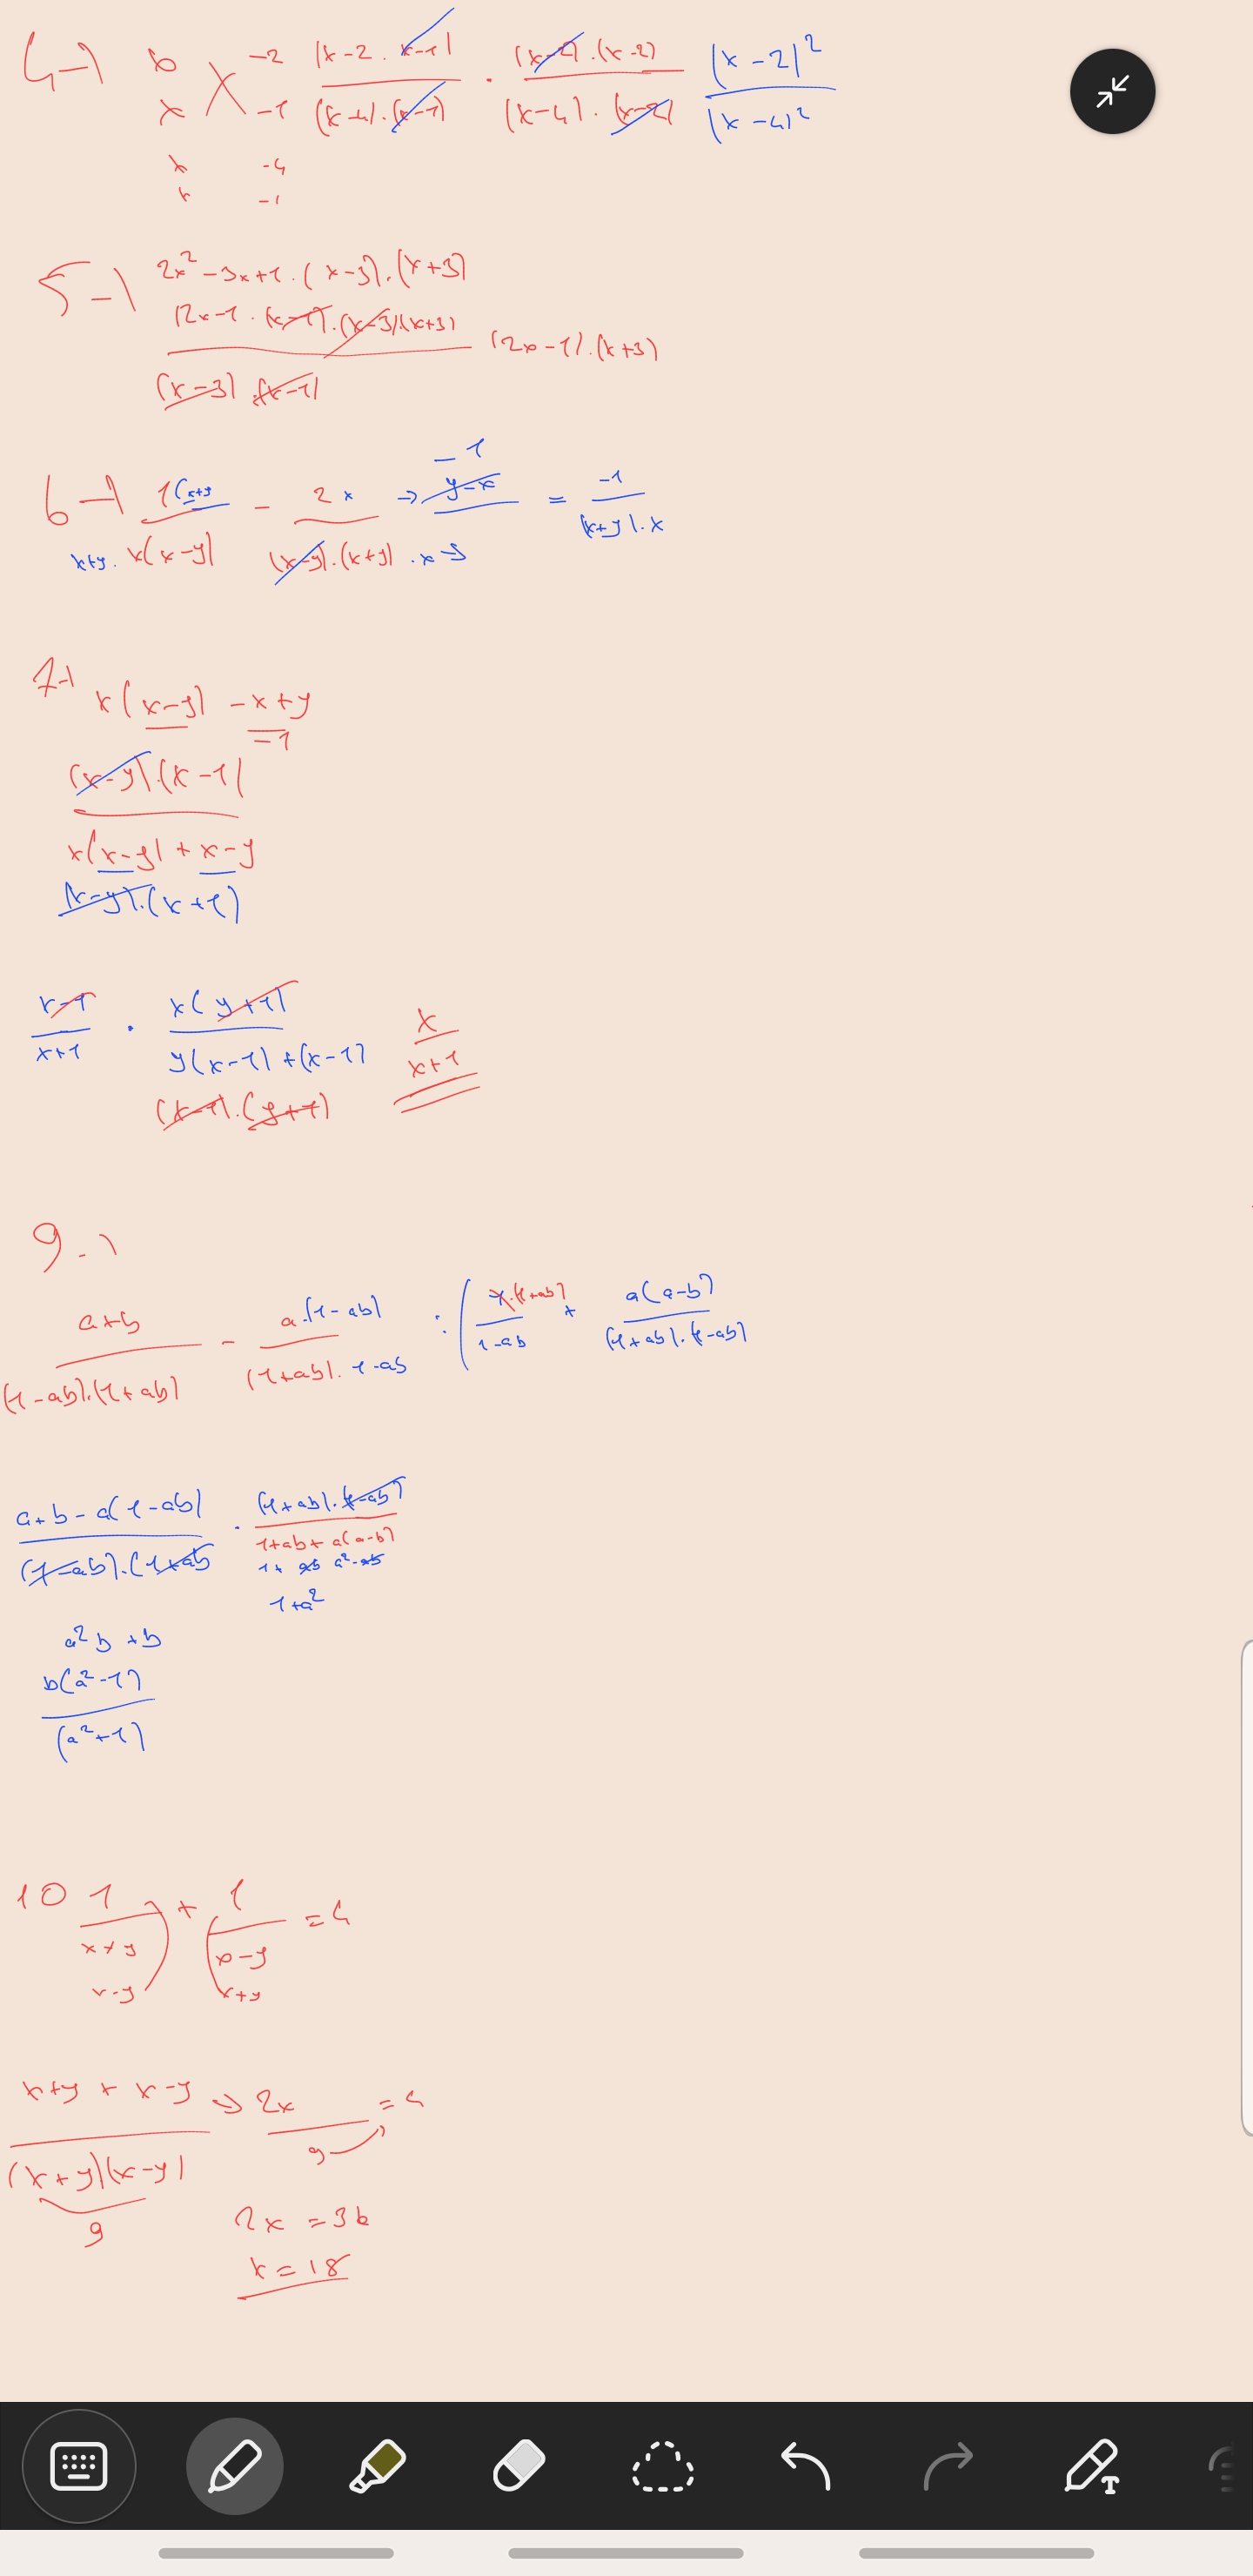 4-) x x -2 (x-2 . x-1) / (x-4).(x-1) . (x-2).(x-2) / (x-4).(x-2) (x-2)² / (x-4)²
x -1
x -4
x -1
5-) 2x²-3x+1.(x-3).(x+3)
(2x-1.(x-1).(x-3)(x+3) / (x-3).(x-1) (2x-1).(x+3)
6-) 1(x+y / x+y. x(x-y) - 2x / (x-y).(x+y).x → -1 y-x = -1 / (x+y).x
7-)
x(x-y) -x+y
-1
(x-y).(x-1)
x(x-y)+x-y
(x-y).(x+1)
x-1 / x+1 . x(y+1) / y(x-1)+(x-1) x / x+1
(x-1).(y+1)
9-)
a+b / (1-ab).(1+ab) - a.(1-ab) / (1+ab).1-ab : ( 1.(1+ab) / 1-ab + a(a-b) / (1+ab).(1-ab)
a+b-a(1-ab) / (1-ab).(1+ab . (1+ab).(1-ab) / 1+ab+a(a-b)
1+ab a²-ab
1+a²
a²b+b
b(a²-1)
(a²+1)
10 1 / x+y + 1 / x-y = 4
x-y x+y
x+y + x-y / (x+y)(x-y) → 2x / 9 = 4
9
2x = 36
x = 18
T